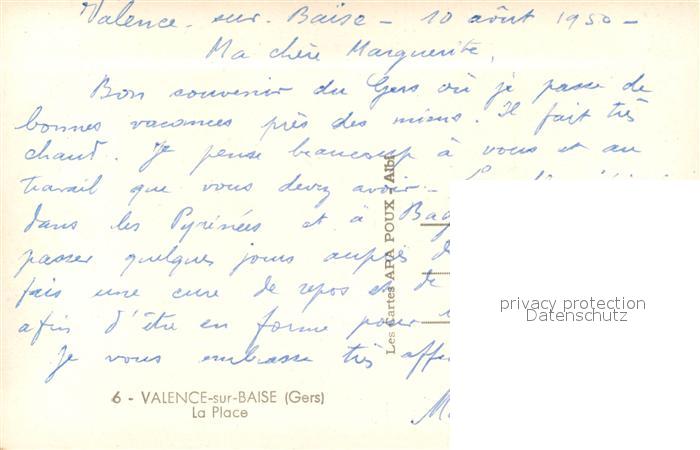 Valence-sur-Baïse - 10 août 1950 -
Ma chère Marguerite,
Bon souvenir du Gers où je passe de
bonnes vacances près des miens. Il fait très
chaud. Je pense beaucoup à vous et au
travail que vous devez avoir -
dans les Pyrénées et à Bag
passer quelques jours auprès d
fais une cure de repos et de
afin d'être en forme pour
Je vous embrasse très affe
Les Cartes APA POUX - Albi
privacy protection
Datenschutz
6 - VALENCE-sur-BAISE (Gers)
La Place